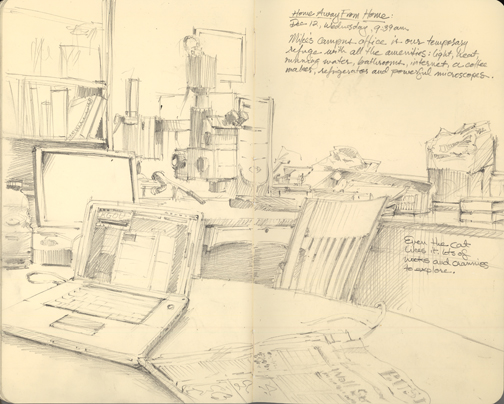 Home Away From Home.
Dec 12, Wednesday, 9:39am
campus office is our temporary
refuge with all the amenities: light, heat,
running water, bathrooms, internet, a coffee
maker, refrigerator and powerful microscopes.
Even the cat
likes it, lots of
nooks and crannies
to explore.